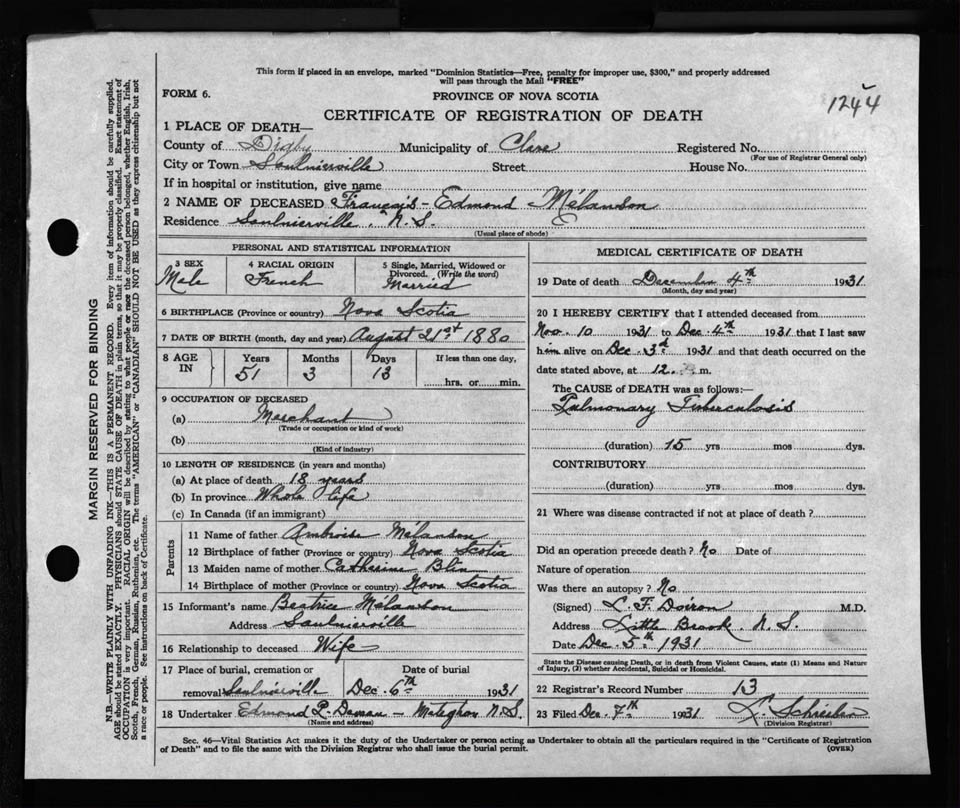 This form if placed in an envelope, marked "Dominion Statistics—Free, penalty for improper use, $300," and properly addressed
will pass through the Mail "FREE"
FORM 6.
PROVINCE OF NOVA SCOTIA
1244
CERTIFICATE OF REGISTRATION OF DEATH
1 PLACE OF DEATH—
County of Digby Municipality of Clare Registered No.
(For use of Registrar General only)
City or Town Saulnierville Street House No.
If in hospital or institution, give name
2 NAME OF DECEASED Français-Edmond Mélanson
Residence Saulnierville, N.S.
(Usual place of abode)
PERSONAL AND STATISTICAL INFORMATION
3 SEX Male
4 RACIAL ORIGIN French
5 Single, Married, Widowed or Divorced. (Write the word) Married
6 BIRTHPLACE (Province or country) Nova Scotia
7 DATE OF BIRTH (month, day and year) August 21st 1880
8 AGE IN Years 51 Months 3 Days 13 If less than one day, hrs. or min.
9 OCCUPATION OF DECEASED
(a) Merchant
(Trade or occupation or kind of work)
(b)
(Kind of industry)
10 LENGTH OF RESIDENCE (in years and months)
(a) At place of death 18 years
(b) In province Whole life
(c) In Canada (if an immigrant)
Parents
11 Name of father Ambroise Mélanson
12 Birthplace of father (Province or country) Nova Scotia
13 Maiden name of mother Catherine Blin
14 Birthplace of mother (Province or country) Nova Scotia
15 Informant's name Beatrice Mélanson
Address Saulnierville
16 Relationship to deceased Wife
17 Place of burial, cremation or Date of burial
removal Saulnierville Dec. 6th 1931
18 Undertaker Edmond P. Meteghan N.S.
(Name and address)
MEDICAL CERTIFICATE OF DEATH
19 Date of death December 4th 1931
(Month, day and year)
20 I HEREBY CERTIFY that I attended deceased from
Nov. 10 1931 to Dec. 4th 1931 that I last saw
him alive on Dec. 3rd 1931 and that death occurred on the
date stated above, at 12 m.
The CAUSE OF DEATH was as follows:—
Pulmonary Tuberculosis
(duration) 15 yrs mos dys.
CONTRIBUTORY
(duration) yrs mos dys.
21 Where was disease contracted if not at place of death ?
Did an operation precede death ? No Date of
Nature of operation
Was there an autopsy ? No
(Signed) L. F. Doiron M.D.
Address Little Brook N.S.
Date Dec. 5th 1931
State the Disease causing Death, or in death from Violent Causes, state (1) Means and Nature
of Injury, (2) whether Accidental, Suicidal or Homicidal.
22 Registrar's Record Number 13
23 Filed Dec 7th 1931
(Division Registrar)
Sec. 46—Vital Statistics Act makes it the duty of the Undertaker or person acting as Undertaker to obtain all the particulars required in the "Certificate of Registration
of Death" and to file the same with the Division Registrar who shall issue the burial permit.
(OVER)
MARGIN RESERVED FOR BINDING
N.B.—WRITE PLAINLY WITH UNFADING INK—THIS IS A PERMANENT RECORD. Every item of information should be carefully supplied.
AGE should be stated EXACTLY. PHYSICIANS should STATE CAUSE OF DEATH in plain terms, so that it may be properly classified. Exact statement of
OCCUPATION is very important. RACIAL ORIGIN will be described by stating to what people or race the deceased person belonged, whether English, Irish,
Scotch, French, German, Russian, Ruthenian, etc. The terms "AMERICAN" or "CANADIAN" SHOULD NOT BE USED as they express citizenship but not
a race or people. See instructions on back of Certificate.